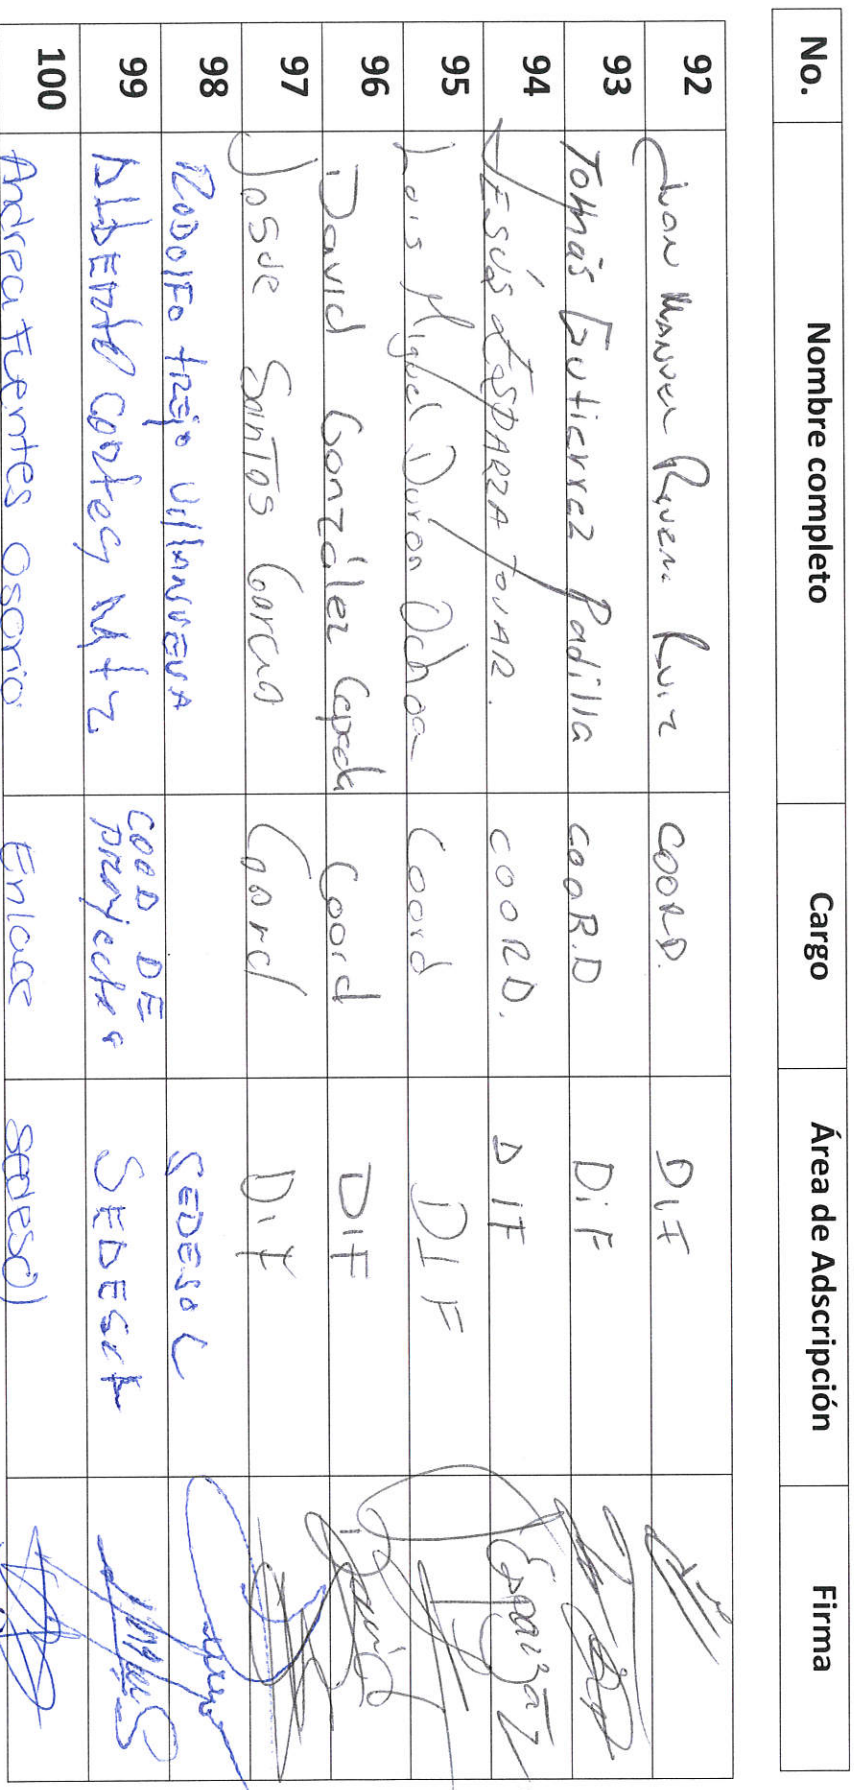 No. Nombre completo Cargo Área de Adscripción Firma
92 Juan Manuel Rivera Ruiz COORD. DIF
93 Tomás Gutierrez Padilla COORD DiF
94 JESÚS ESPARZA TOVAR. COORD. DIF
95 Luis Miguel Duron Ochoa Coord DIF
96 David González Cepeda Coord DIF
97 Josue SanTos Garcia Coord DiF
98 RODOlFO trejo VillANUEVA SEDESOL
99 AlbErto cortes Mtz. COOD DE proyectos SEDESOL
100 Andrea Fuentes Osorio Enlace sedesol